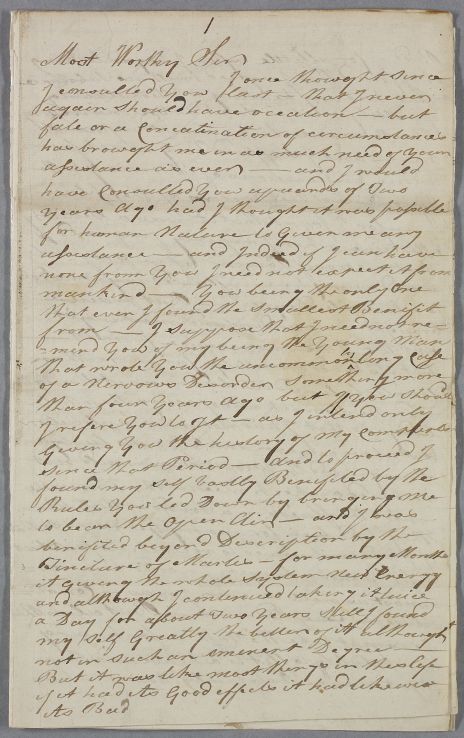 1
Most Worthy Sir
I once thought since
I consulted You last — that I never
again should have occation — but
fate or a Concatination of circumstances
has brought me in as much need of Your
assistance as ever — and I would
have Consulted You upwards of Two
Years Ago had I thought it was possible
for human Nature to Given me any
assistance — and Indeed if I can have
none from You I need not expect it from
mankind — You being the only one
that ever I found the Smallest Benifit
from — I suppose that I need not re-
mind You of my being the Young Man
that wrote You the uncommon long Case
of a Nervous Desorder Something more
than four Years ago but if You should
I refere You to It — as I intend only
Giving You the history of my Complaints
since that Period — and to proceed I
found my self vastly Benifited by the
Rules You led Down by bringing me
to bear the Open Air — and I was
benifited beyond Description by the
Tincture of Martis — for many Months
it Giving the whole System New Energy
and although I continued taking it twice
a Day for about Two Years Still I found
my self Greatly the better of it although
not in Such an eminent Degree —
But it was like most things in this life
if it had its Good effects it had likewise
its Bad